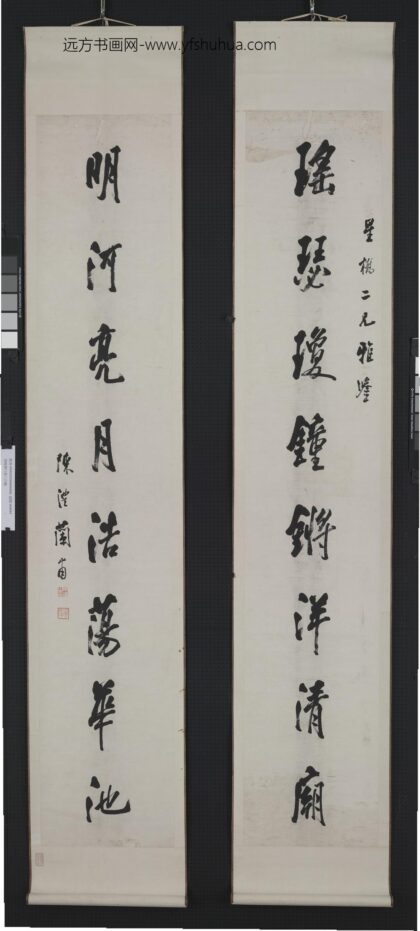 远方书画网-www.yfshuhua.com
星橋二兄雅鑒
瑤瑟瓊鐘鏘洋清廟
明河亮月浩蕩華池
陳澧蘭甫